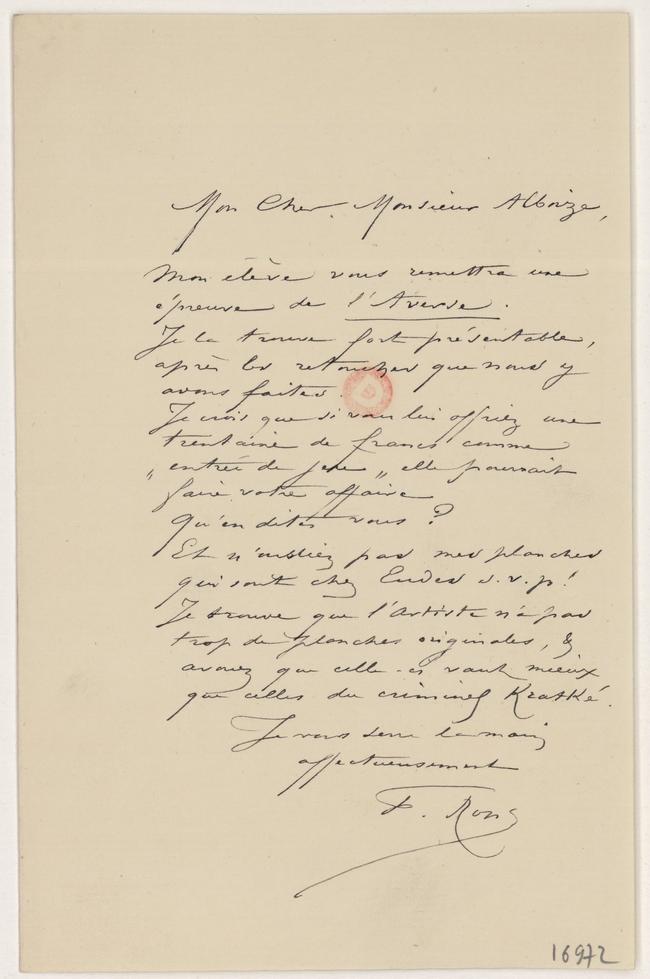 Mon Cher Monsieur Alboize,
Mon élève vous remettra une
épreuve de l'Averse.
Je la trouve fort présentable,
après les retouches que nous y
avons faites.
Je crois que si vous lui offriez une
trentaine de francs comme
"entrée de jeu" elle pourrait
faire votre affaire
Qu'en dites vous ?
Et n'oubliez pas mes planches
qui sont chez Eudes s.v.p!
Je trouve que l'Artiste n'a pas
trop de planches originales, &
avouez que celle-ci vaut mieux
que celles du criminel Kratké.
Je vous serre la main
affectueusement
F. Rops
16972